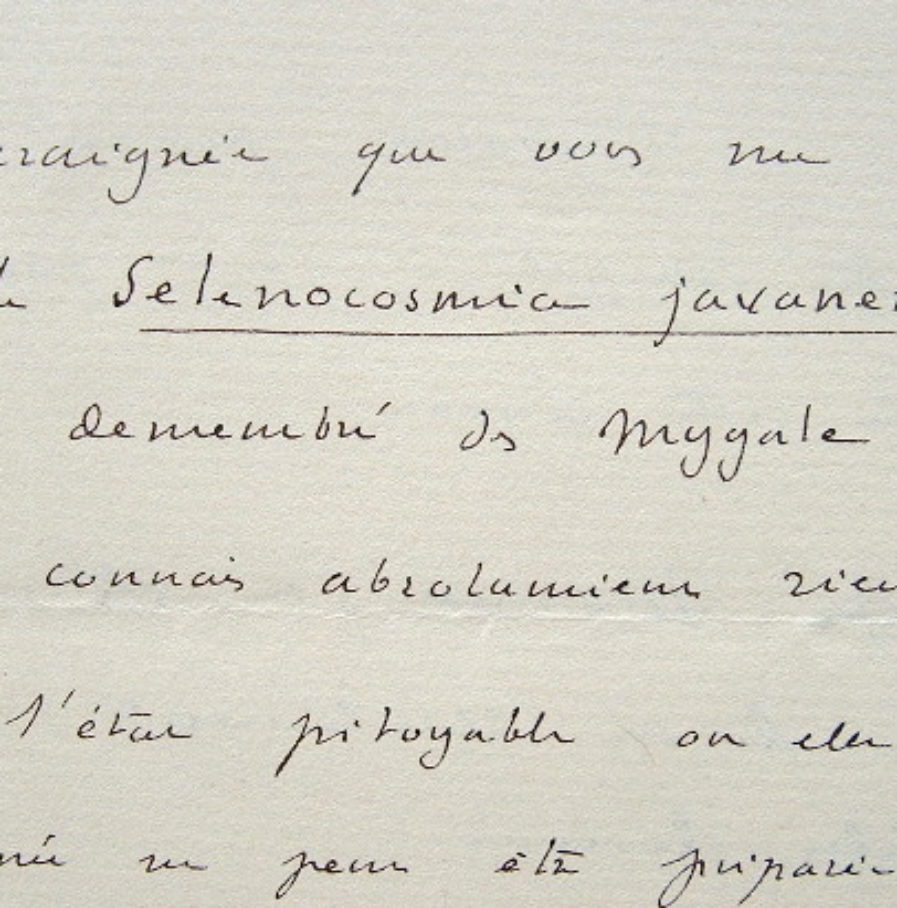 araignée que vous me
Selenocosmia javanes
demembré des Mygale
connais absolument rien
l'état pitoyable ou elle
née ne peut être préparée